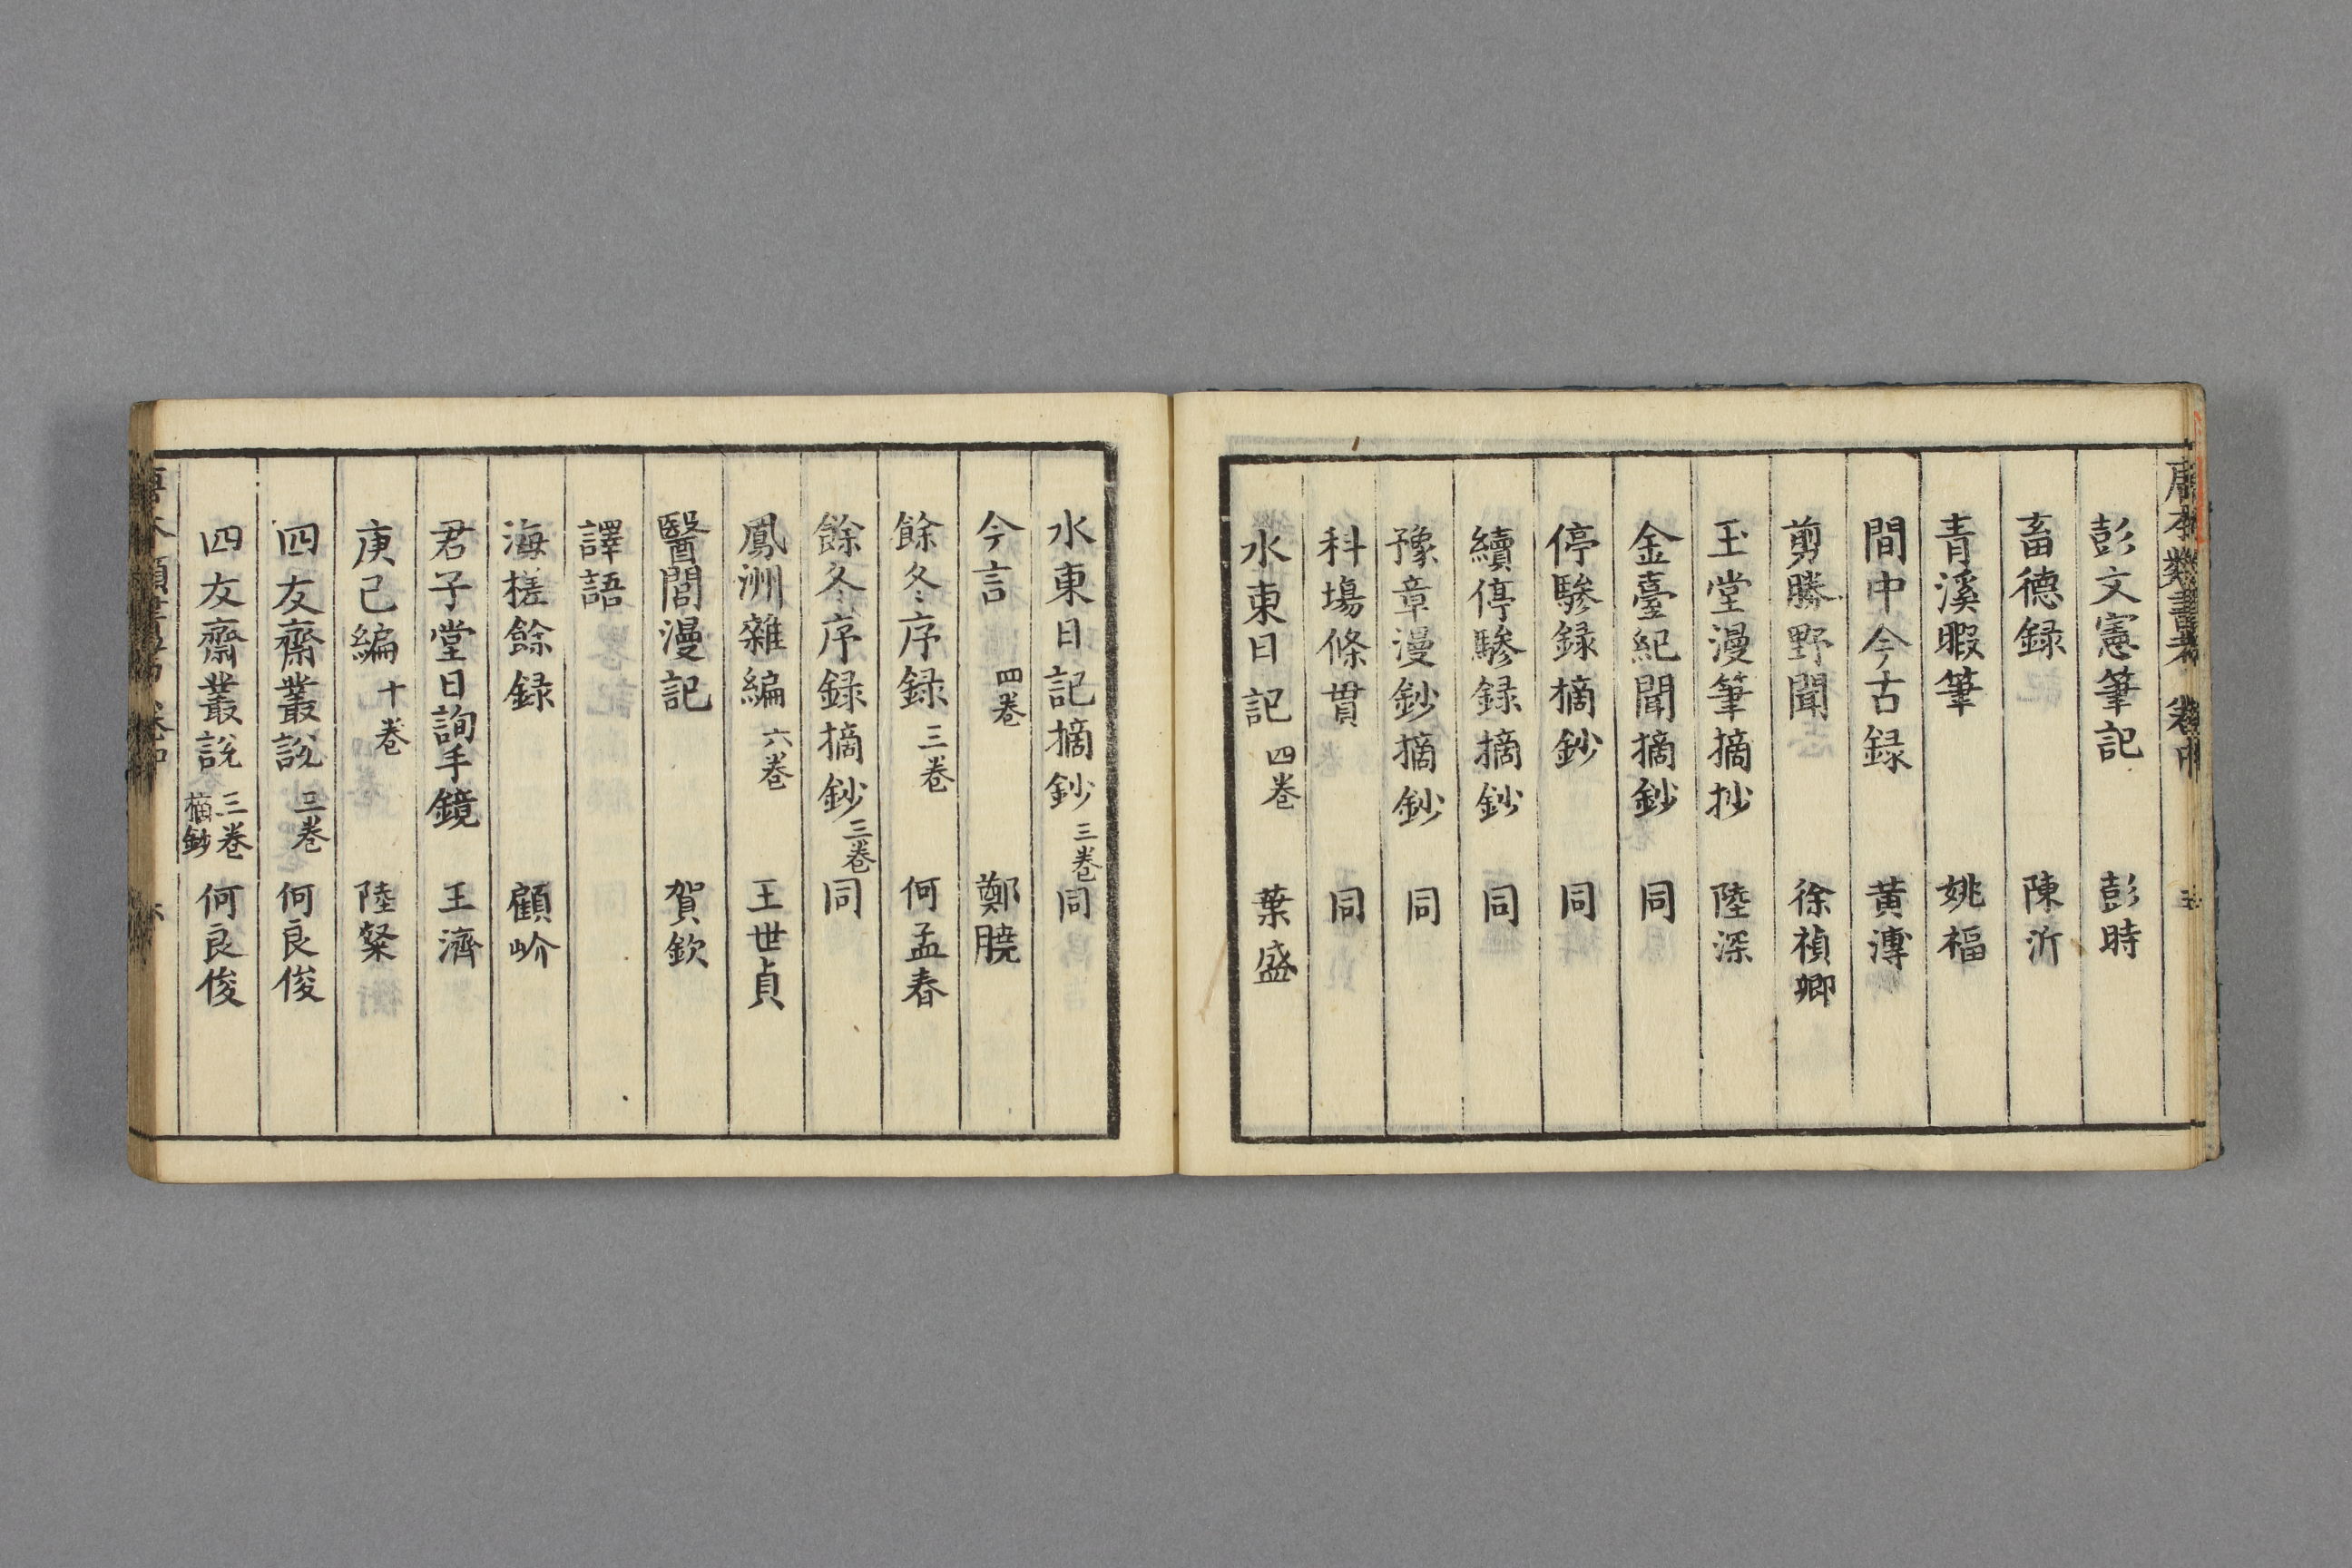 彭文憲筆記 彭時
畜德録 陳沂
青溪暇筆 姚福
間中今古録 黄溥
剪勝野聞 徐禎卿
玉堂漫筆摘抄 陸深
金臺紀聞摘鈔 同
停驂録摘鈔 同
續停驂録摘鈔 同
豫章漫鈔摘鈔 同
科場條貫 同
水東日記 四卷 葉盛
水東日記摘鈔 三卷 同
今言 四卷 鄭曉
餘冬序録 三卷 何孟春
餘冬序録摘鈔 三卷 同
鳳洲雜編 六卷 王世貞
醫閭漫記 賀欽
譯語
海槎餘録 顧岕
君子堂日詢手鏡 王濟
庚己編 十卷 陸粲
四友齋叢説 三卷 何良俊
四友齋叢説 三卷 摘鈔 何良俊